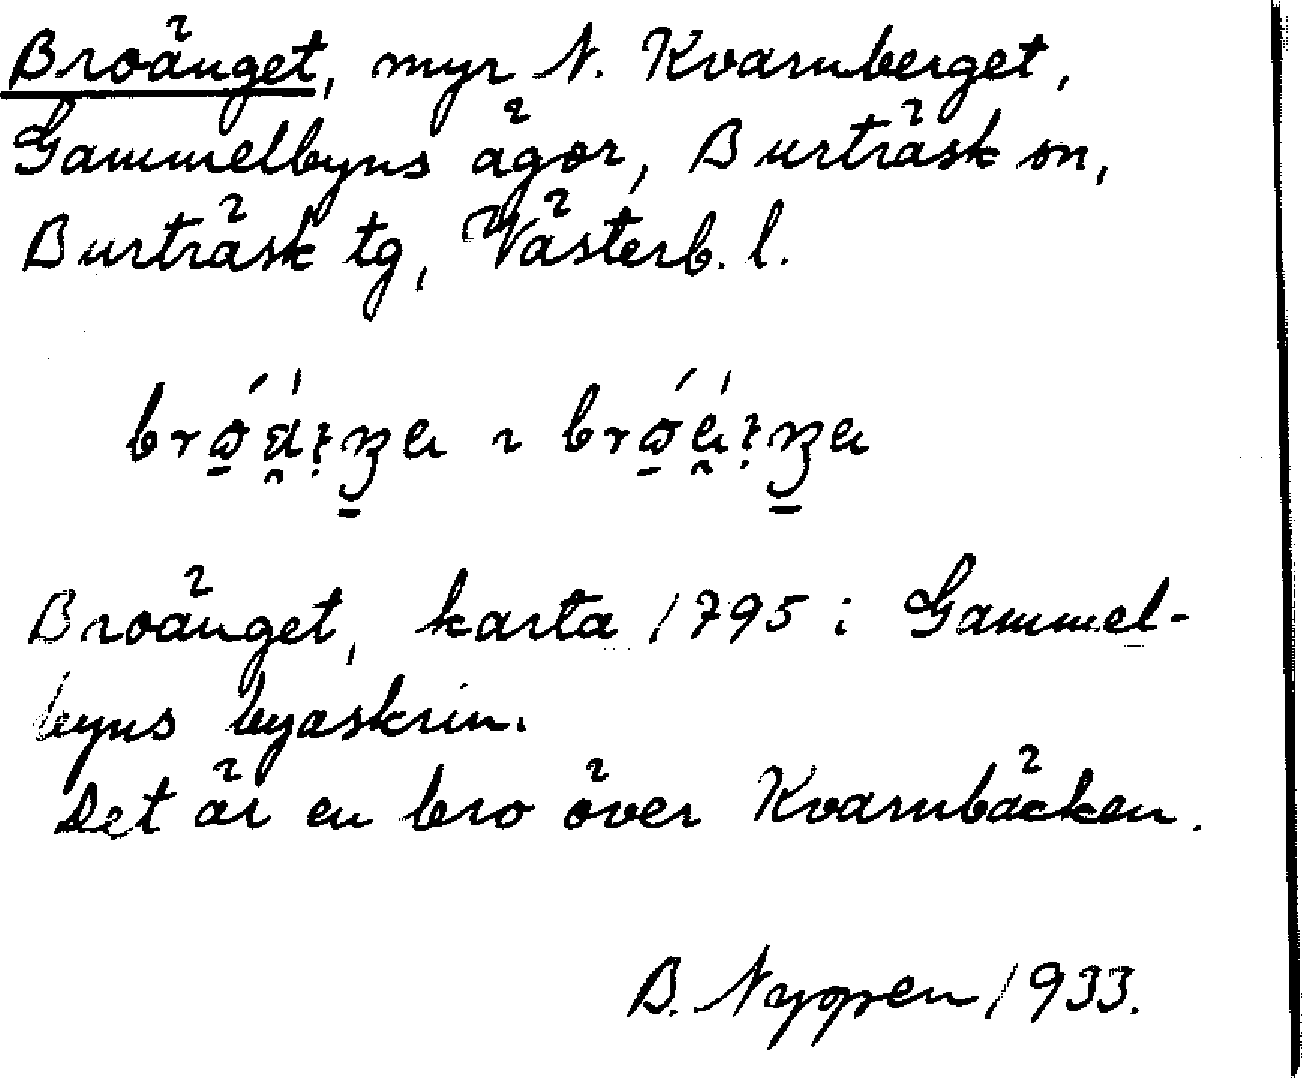 Broänget, myr N. Kvarnberget,
Gammelbyns ägor, Burträsk sn,
Burträsk tg, Västerb. l.
Broänget, karta 1795 i Gammel-
byns byaskrin.
Det är en bro över Kvarnbäcken.
B. 1933.